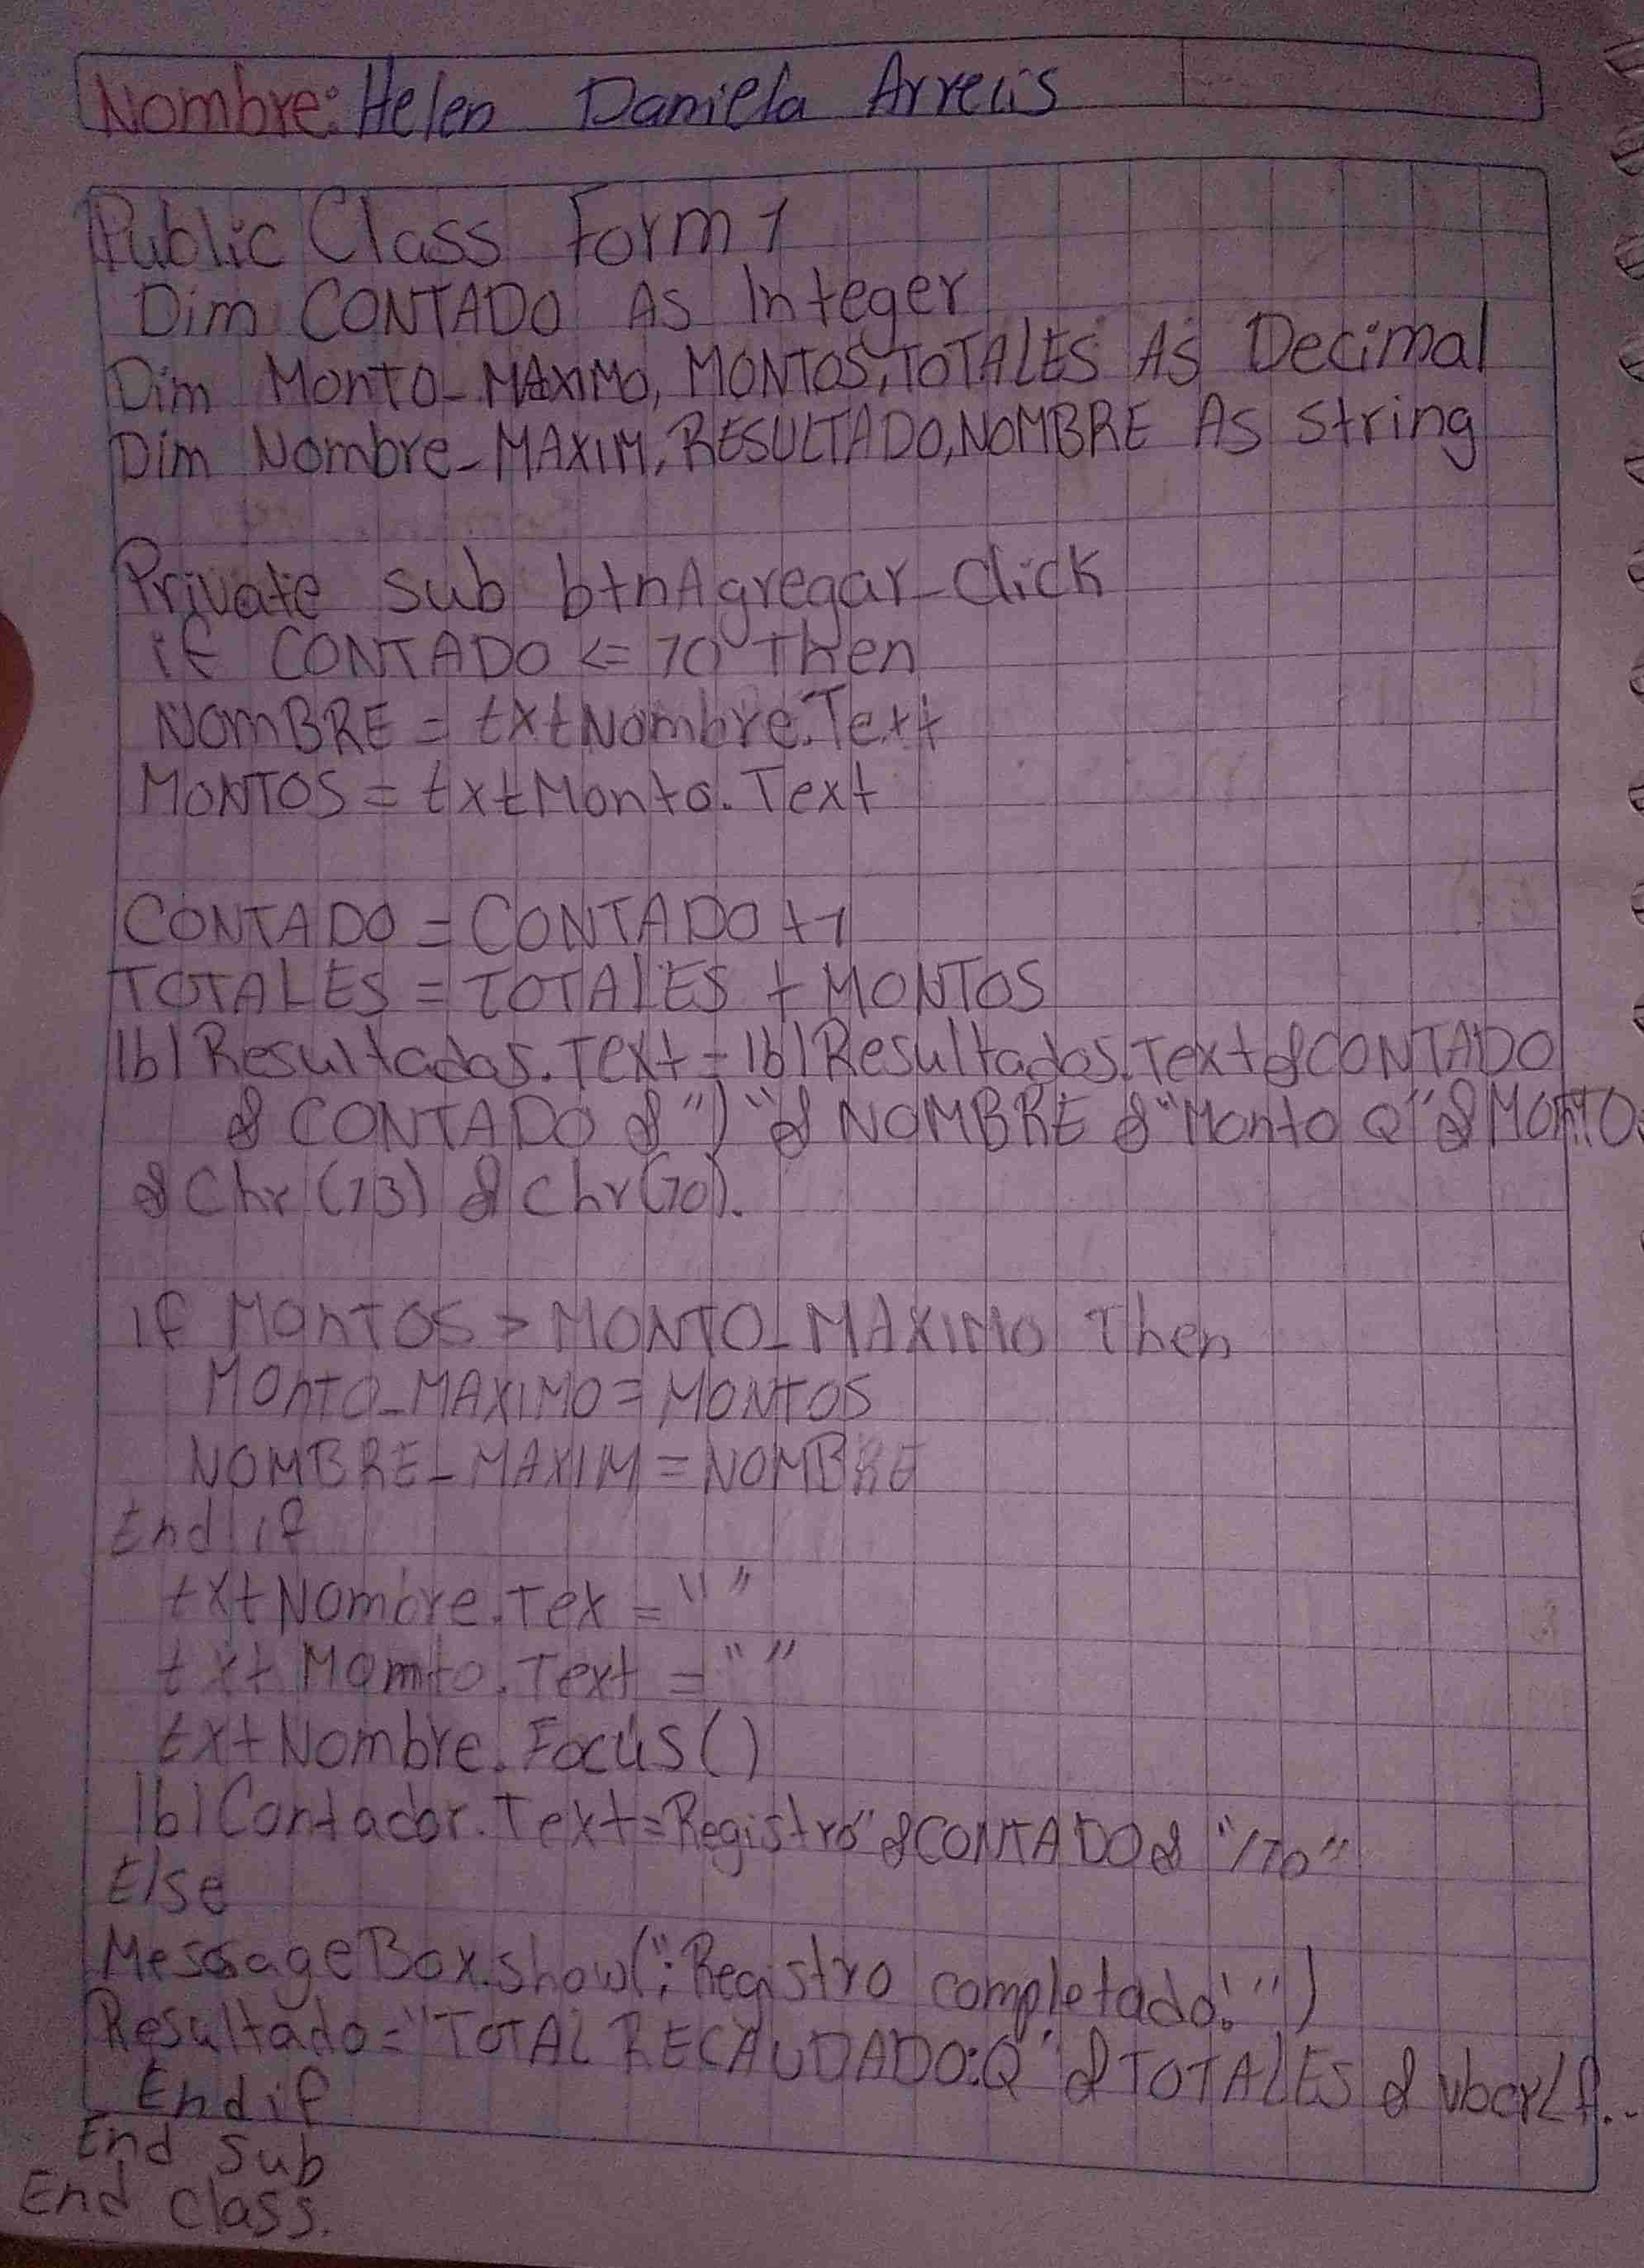 Nombre: Helen Daniela Arrecis
Public Class Form 1
Dim CONTADO As Integer
Dim MonTO_MAXIMO, MONTOS, TOTALES As Decimal
Dim Nombre_MAXIM, RESULTADO, NOMBRE As String
Private sub btnAgregar_Click
if CONTADO <= 10 Then
NOmBRE = txtNombre.Text
MONTOS = txtMonto.Text
CONTADO = CONTADO +1
TOTALES = TOTALES + MONTOS
lblResultados.Text = lblResultados.Text & CONTADO
& CONTADO & ") " & NOMBRE & "Monto Q" & MOnTOS
& Chr (13) & Chr(10).
if MOnTOS > MONTO_MAXIMO Then
MOnTO_MAXIMO = MONTOS
NOMBRE_MAXIM = NOMBRE
End if
txtNombre.Tex = ""
txtMomto.Text = ""
txtNombre.Focus()
lblContador.Text = Registro" & CONTADO & "/10"
Else
MessageBox.show("¡Registro completado!")
Resultado = "TOTAL RECAUDADO:Q" & TOTALES & vbcrLf...
End if
End Sub
End Class.